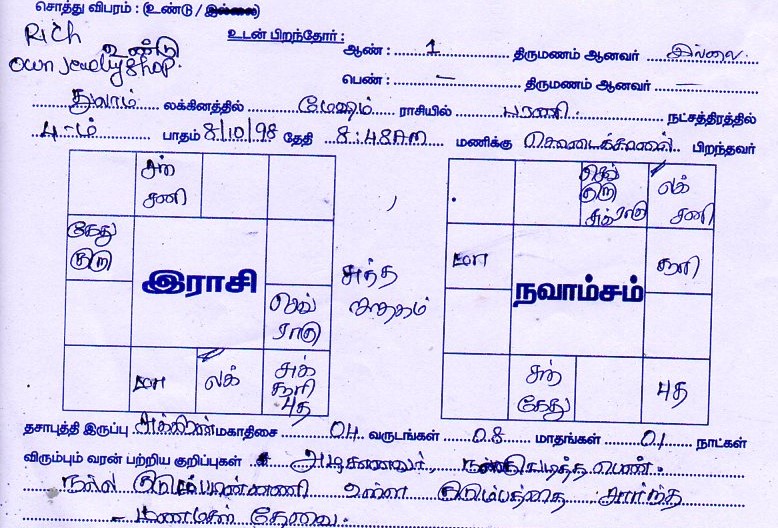 சொத்து விபரம் : (உண்டு / இல்லை)
Rich உண்டு
own jewelry shop.
உடன் பிறந்தோர் :
ஆண் : 1 திருமணம் ஆனவர் இல்லை.
பெண் : – திருமணம் ஆனவர் –
துலாம் லக்கினத்தில் மேஷம் ராசியில் பரணி. நட்சத்திரத்தில்
4-ம் பாதம் 8/10/98 தேதி 8:48AM மணிக்கு கொடைக்கானல் பிறந்தவர்
சந்
சனி
கேது
குரு
இராசி
செவ்
ராகு
மா
லக்
சுக்
சூரி
புத
சுத்த
ஜாதகம்
செவ்
குரு
சுக் ராகு
லக்
சனி
மா
நவாம்சம்
சூரி
சந்
கேது
புத
தசாபுத்தி இருப்பு சுக்கிரன் மகாதிசை 04 வருடங்கள் 08 மாதங்கள் 01 நாட்கள்
விரும்பும் வரன் பற்றிய குறிப்புகள் அழகானவர், நன்கு படித்த பெண்.
நல்ல குடும்ப பண்ணணி உள்ள குடும்பத்தை சார்ந்த
– மணமகள் தேவை.